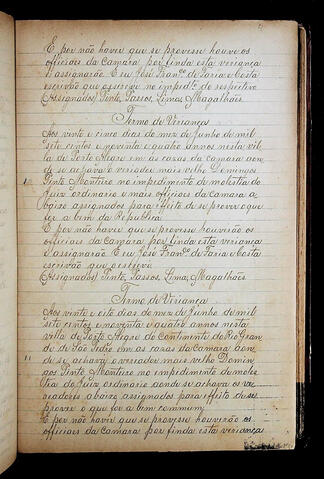 E por não haver que se provesse houve os
officiaes da Camara por finda esta veriança
e assignarão. E eu José Franco de Faria e Costa
escrivão que escrevi no impedto do respetivo
(Assignados) Pinto, Passos, Lima, Magalhães
Termo de Veriança
Aos vinte e cinco dias do mez de Junho de mil
sete centos e noventa e quatro annos nesta vil-
la de Porto Alegre em as cazas da camara aon-
de se achava o vereador mais velho Domingos
Pinto Monteiro no impedimento de molestia do
Juiz ordinario e mais officiaes da camara a-
baixo assignados para effeito de se prover o que
for a bem da Republica
E por não haver que se provesse houverão os
officiaes da Camara por finda esta veriança
e assignarão. E eu José Franco de Faria e Costa
escrivão que escrevi
(Assignados) Pinto, Passos, Lima, Magalhães
Termo de Veriança
Aos vinte e oito dias do mez de Junho de mil
sete centos e noventa e quatro annos nesta
villa de Porto Alegre do Continente do Rio Gran-
de de São Pedro em as cazas da Camara aon-
de se achava o vereador mais velho Domin-
gos Pinto Monteiro no impedimento de moles-
tia do Juiz ordinario donde se achava os ve-
riadores abaixo assignados para effeito de se
prover o que for a bem commum
E por não haver que se provesse houverão os
officiaes da Camara por finda esta veriança